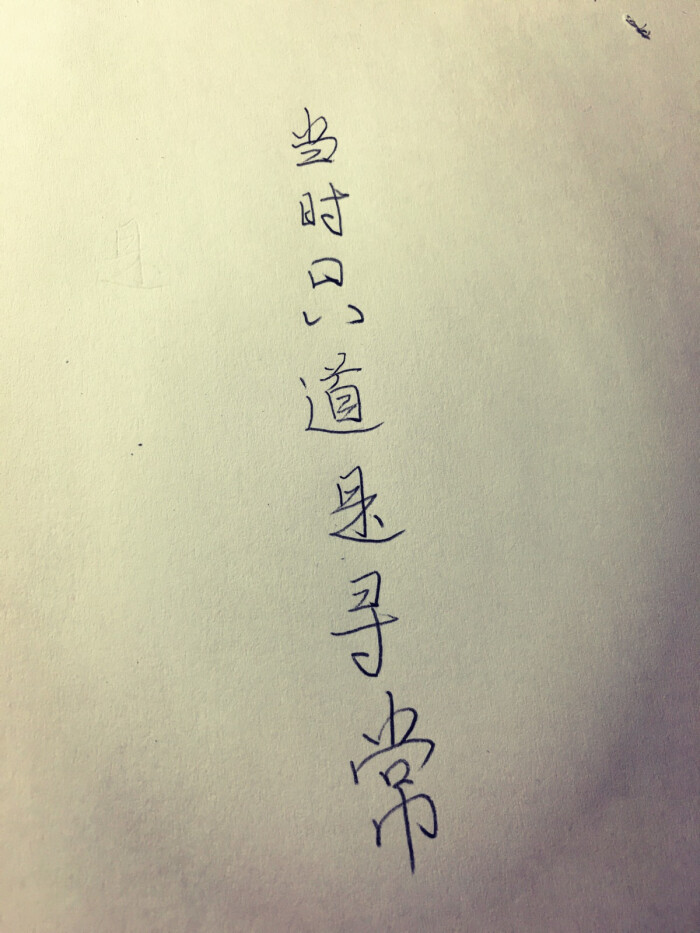 当时只道是寻常